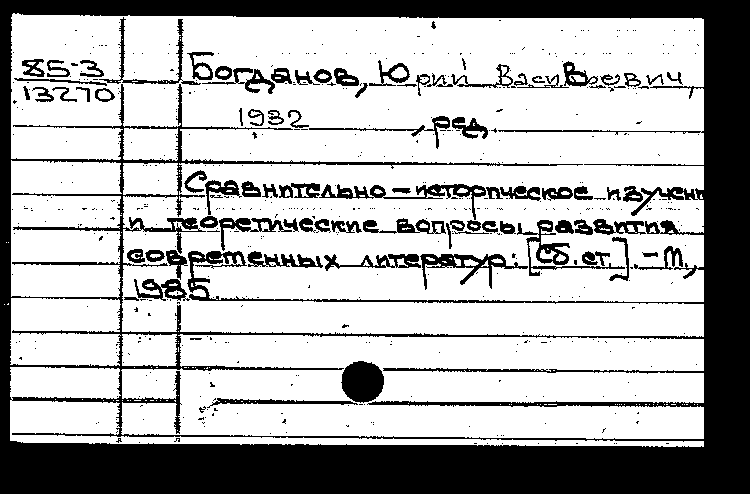 85-3
13270
Богданов, Юрий Васильевич,
1932
, ред.
Сравнительно-историческое изучен
и теоретические вопросы развития
современных литератур: [Сб. ст.] - М,
1985.